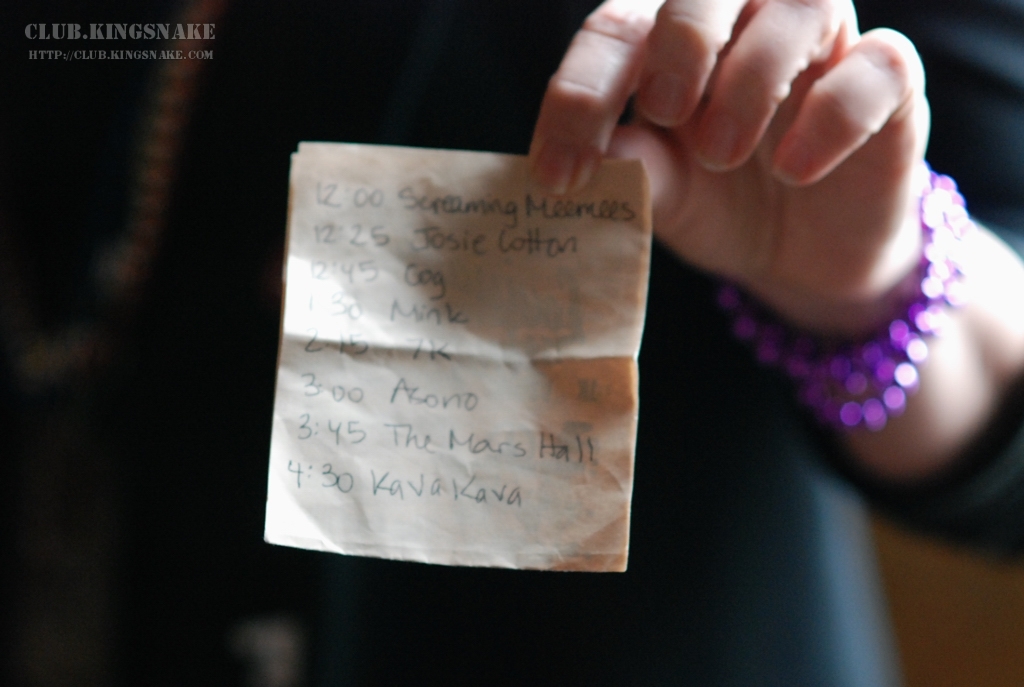 CLUB.KINGSNAKE
HTTP://CLUB.KINGSNAKE.COM
12:00 Screaming Meemees
12:25 Josie Cotton
12:45 Cog
1:30 Mink
2:15 7K
3:00 Asono
3:45 The Mars Hall
4:30 Kava Kava